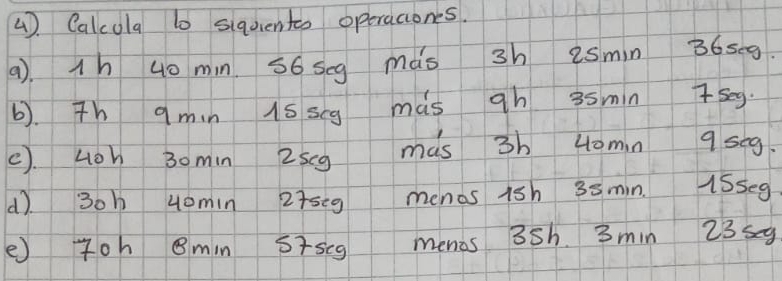 4). Calcula lo siguientes operaciones.
a). 1h 40 min. 56 seg más 3h 25min 36seg.
b). 7h 9min 15 seg más 9h 35min 7seg.
c). 40h 30min 2seg más 3h 40min 9seg.
d). 30h 40min 27seg menos 15h 35min. 15seg.
e) 70h 8min 57seg menos 35h. 3min 23seg